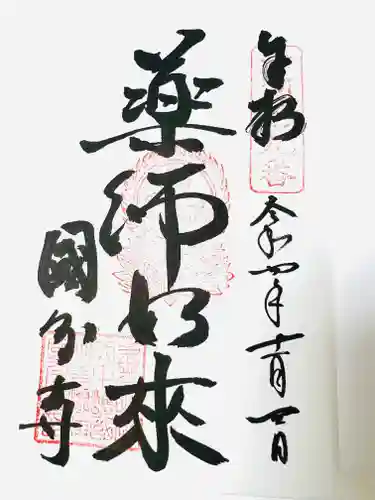 奉拝
令和四年十一月廿日
薬師如来
國分寺